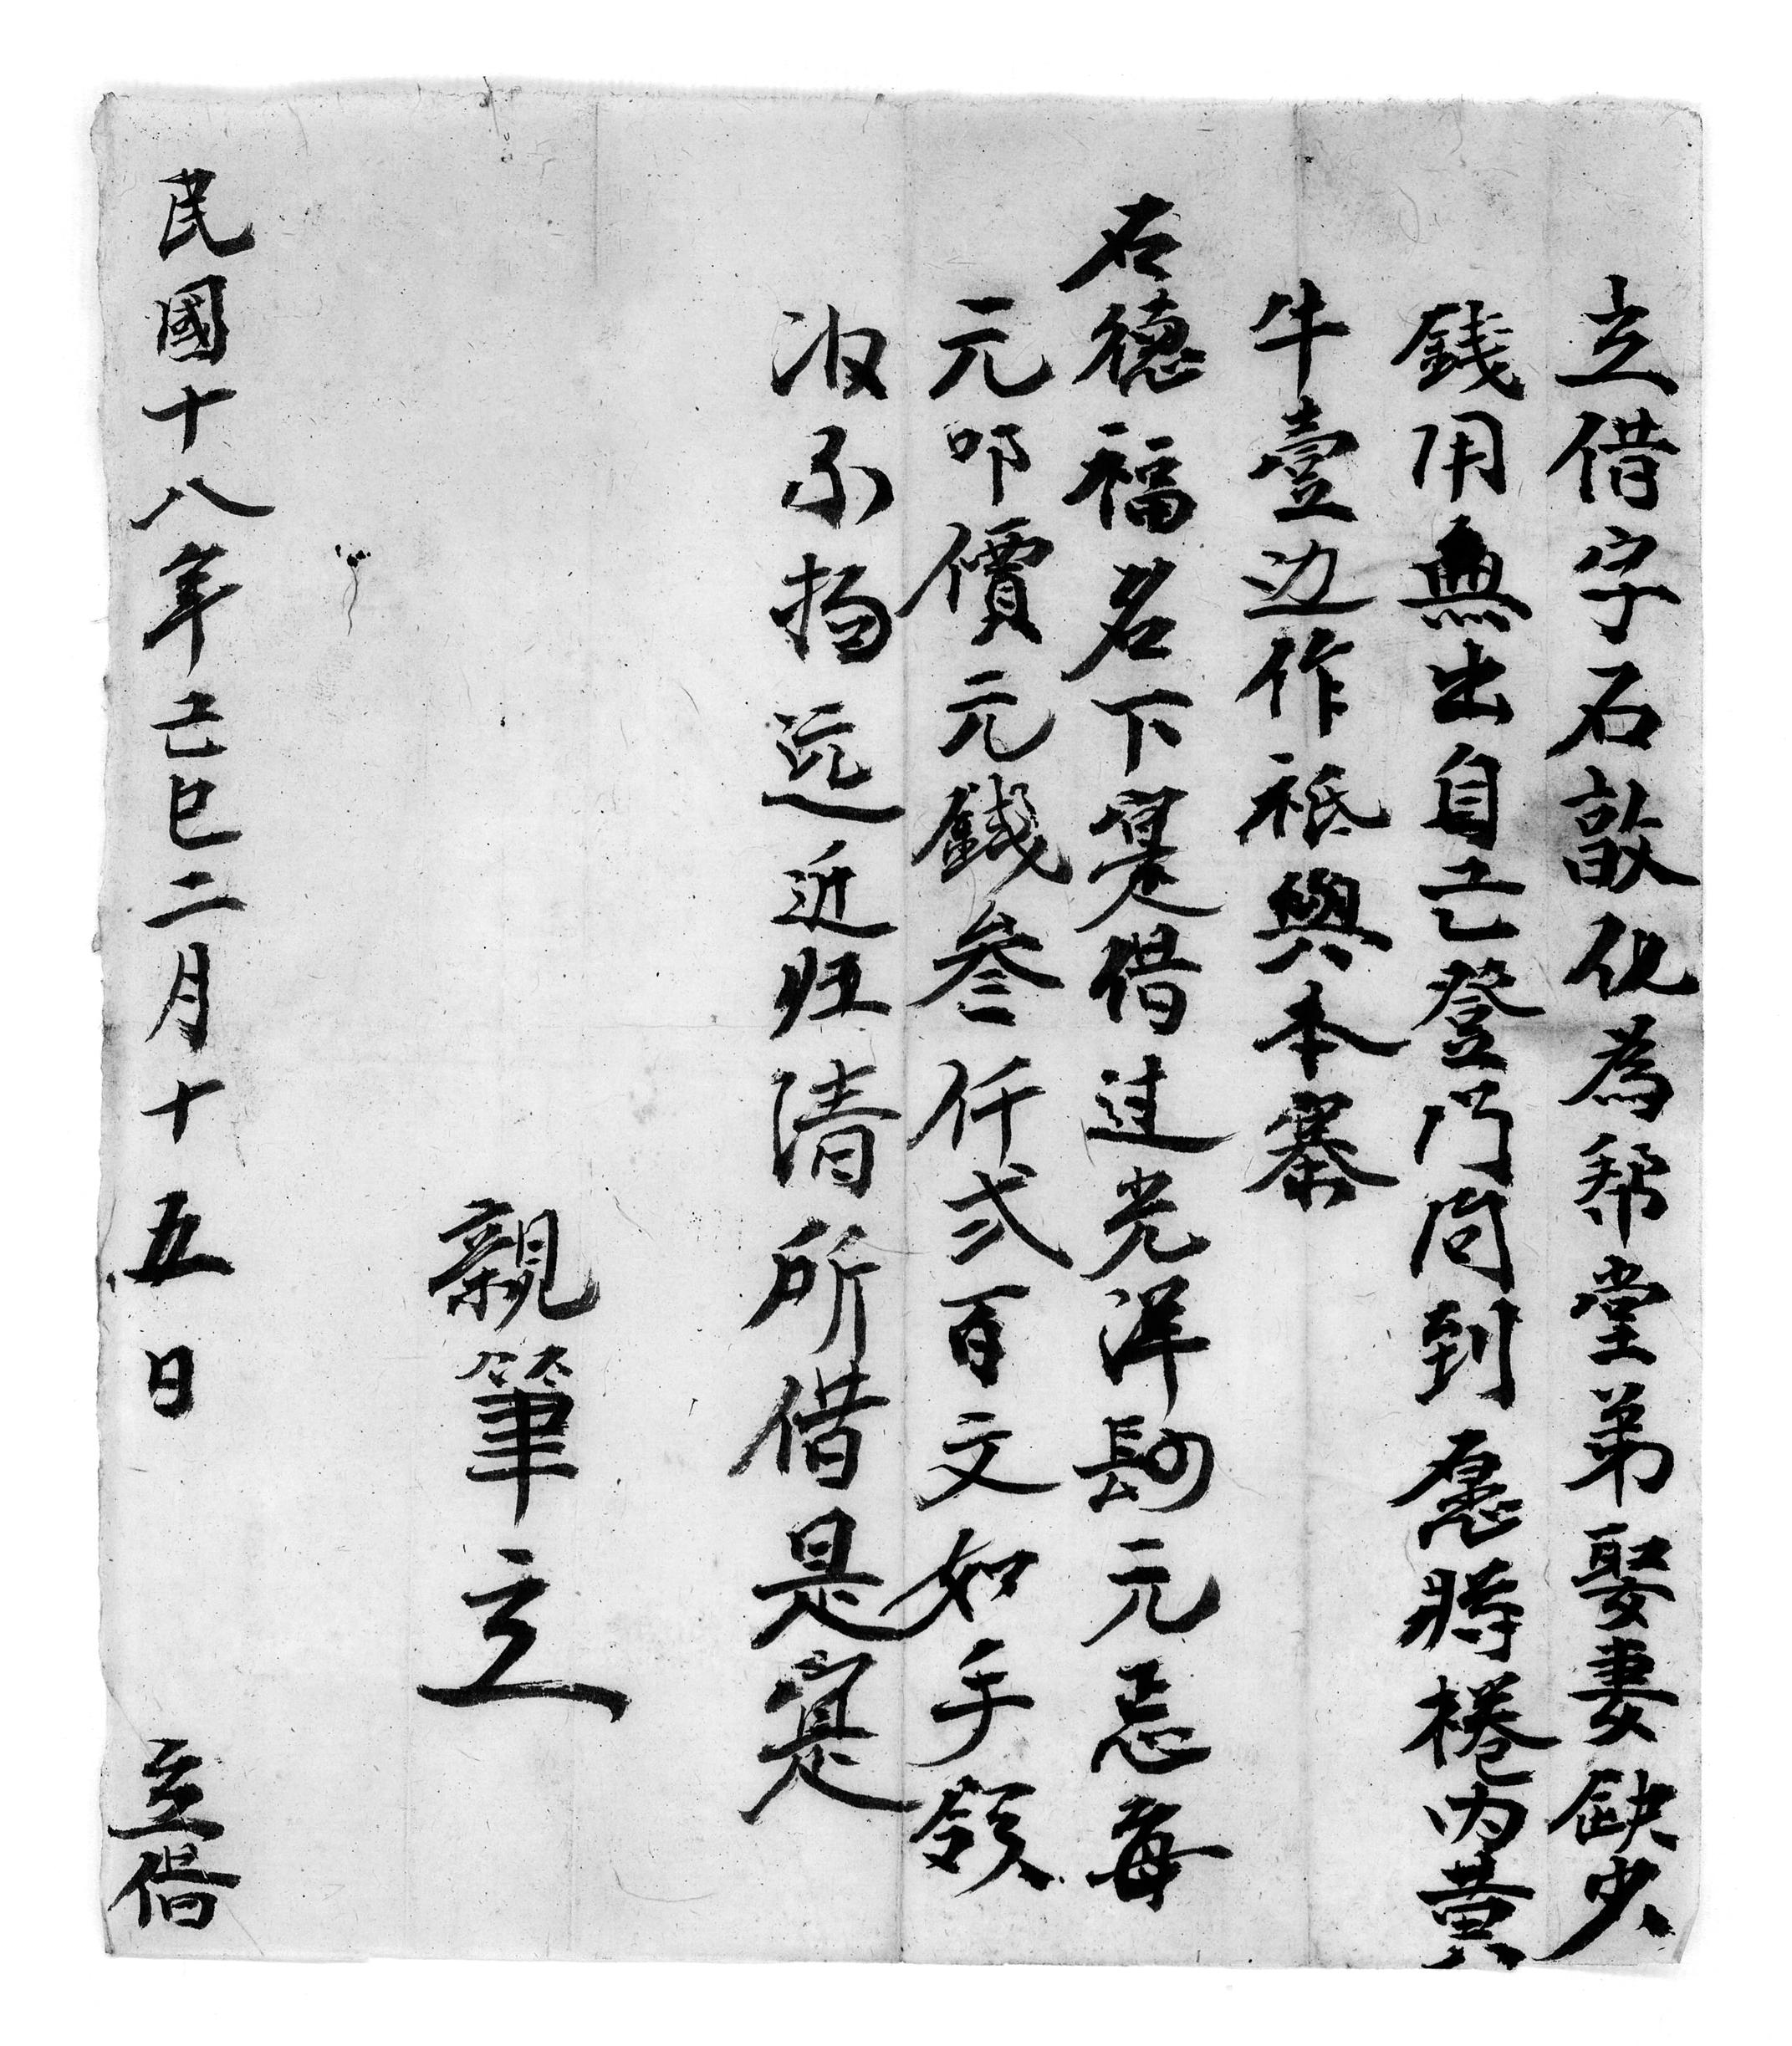 立借字石啟化為帮堂弟娶妻缺少
錢用無出自己登門问到愿將棬内黄
牛壹边作祗與本寨
石德福名下寔借过光洋元忌每
元叩價元錢叁仟弍百文如手領
没不拘远近归清所借是寔
親筆立
民國十八年己巳二月十五日 立借